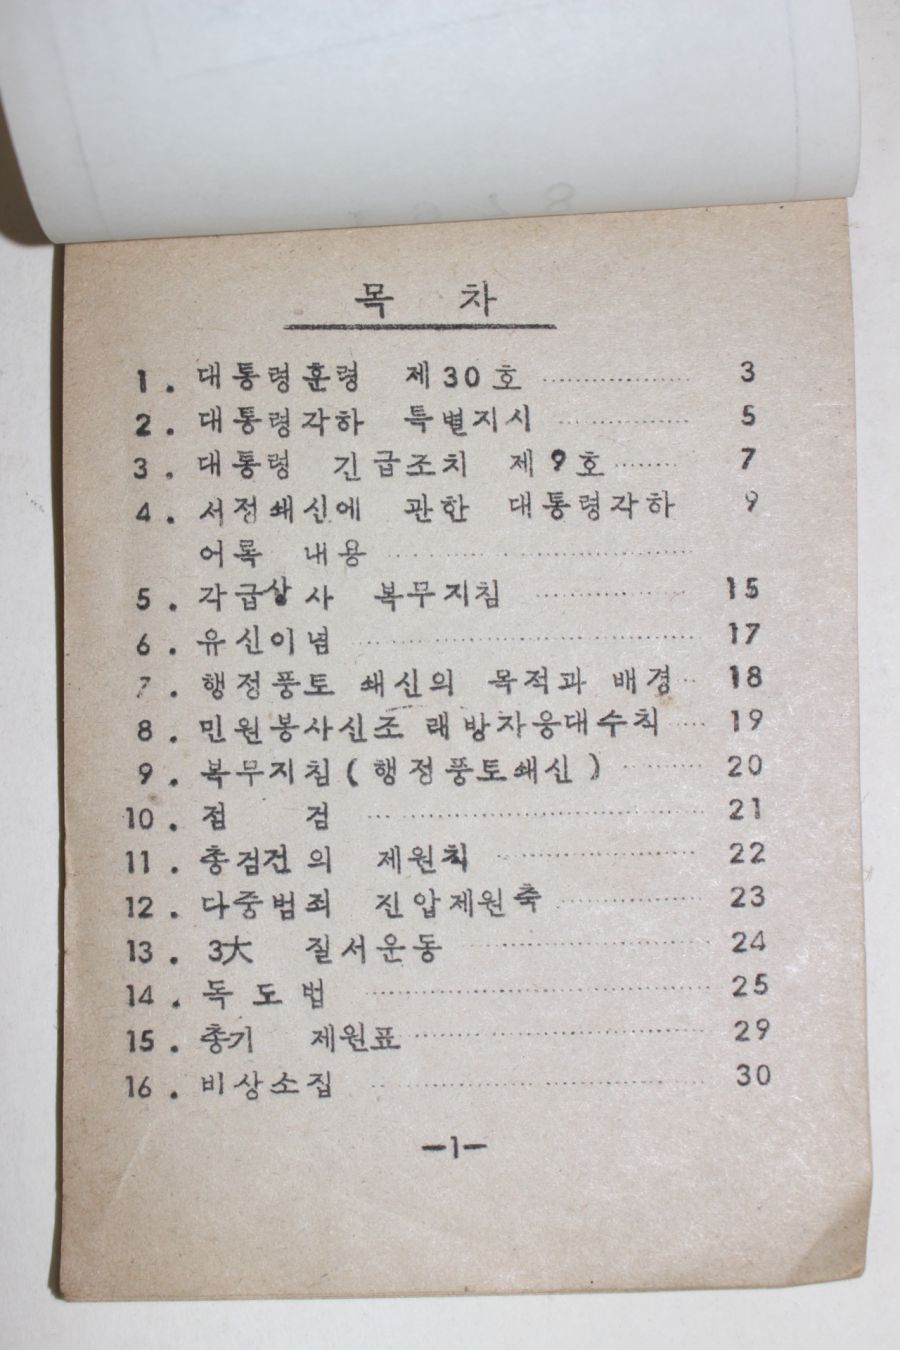 목 차
1. 대통령훈령 제30호 ………… 3
2. 대통령각하 특별지시 ………… 5
3. 대통령 긴급조치 제9호 ……… 7
4. 서정쇄신에 관한 대통령각하 9
어록 내용 ………………
5. 각급상사 복무지침 ………… 15
6. 유신이념 ………………… 17
7. 행정풍토 쇄신의 목적과 배경 … 18
8. 민원봉사신조 래방자응대수칙 … 19
9. 복무지침(행정풍토쇄신) ……… 20
10. 점 검 ………………… 21
11. 총검전의 제원칙 ………… 22
12. 다중범죄 진압제원축 ………… 23
13. 3大 질서운동 ……………… 24
14. 독도법 ………………… 25
15. 총기 제원표 ……………… 29
16. 비상소집 ………………… 30
-1-